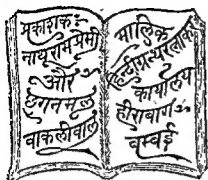 प्रकाशक:
नाथूराम प्रेमी
और
छगनमल
वाकलीवाल
मालिक
हिन्दीग्रन्थरत्नाकर
कार्यालय
हीराबाग
वम्बई